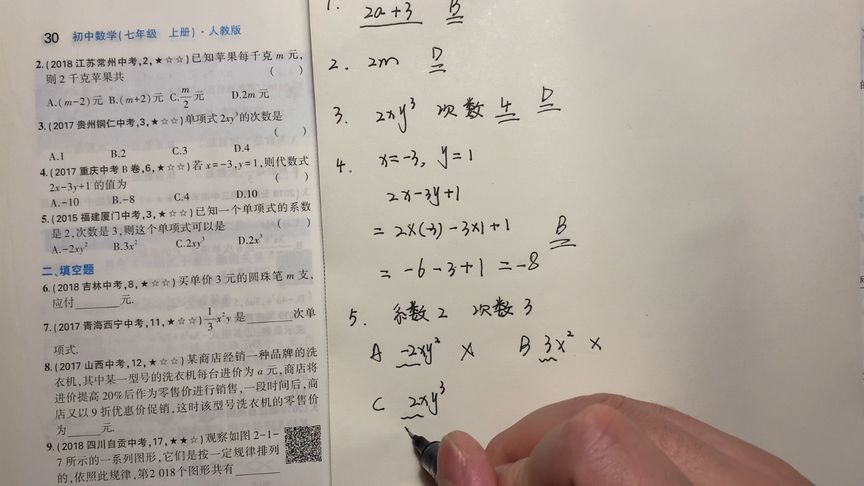 30 初中数学(七年级 上册)·人教版
2.(2018江苏常州中考,2,★☆☆)已知苹果每千克m元,
则2千克苹果共 ( )
A.(m-2)元 B.(m+2)元 C.m/2元 D.2m元
3.(2017贵州铜仁中考,3,★☆☆)单项式2xy³的次数是
( )
A.1 B.2 C.3 D.4
4.(2017重庆中考B卷,6,★☆☆)若x=-3,y=1,则代数式
2x-3y+1的值为 ( )
A.-10 B.-8 C.4 D.10
5.(2015福建厦门中考,3,★☆☆)已知一个单项式的系数
是2,次数是3,则这个单项式可以是 ( )
A.-2xy² B.3x² C.2xy³ D.2x³
二、填空题
6.(2018吉林中考,8,★☆☆)买单价3元的圆珠笔m支,
应付______元.
7.(2017青海西宁中考,11,★☆☆)1/3x²y是______次单
项式.
8.(2017山西中考,12,★☆☆)某商店经销一种品牌的洗
衣机,其中某一型号的洗衣机每台进价为a元,商店将
进价提高20%后作为零售价进行销售,一段时间后,商
店又以9折优惠价促销,这时该型号洗衣机的零售价
为______元.
9.(2018四川自贡中考,17,★★☆)观察如图2-1-
7所示的一系列图形,它们是按一定规律排列
的,依照此规律,第2 018个图形共有______
1. 2a+3 B
2. 2m D
3. 2xy³ 次数 4 D
4. x=-3, y=1
2x-3y+1
=2×(-3)-3×1+1 B
=-6-3+1=-8
5. 系数2 次数3
A -2xy² × B 3x² ×
C 2xy³